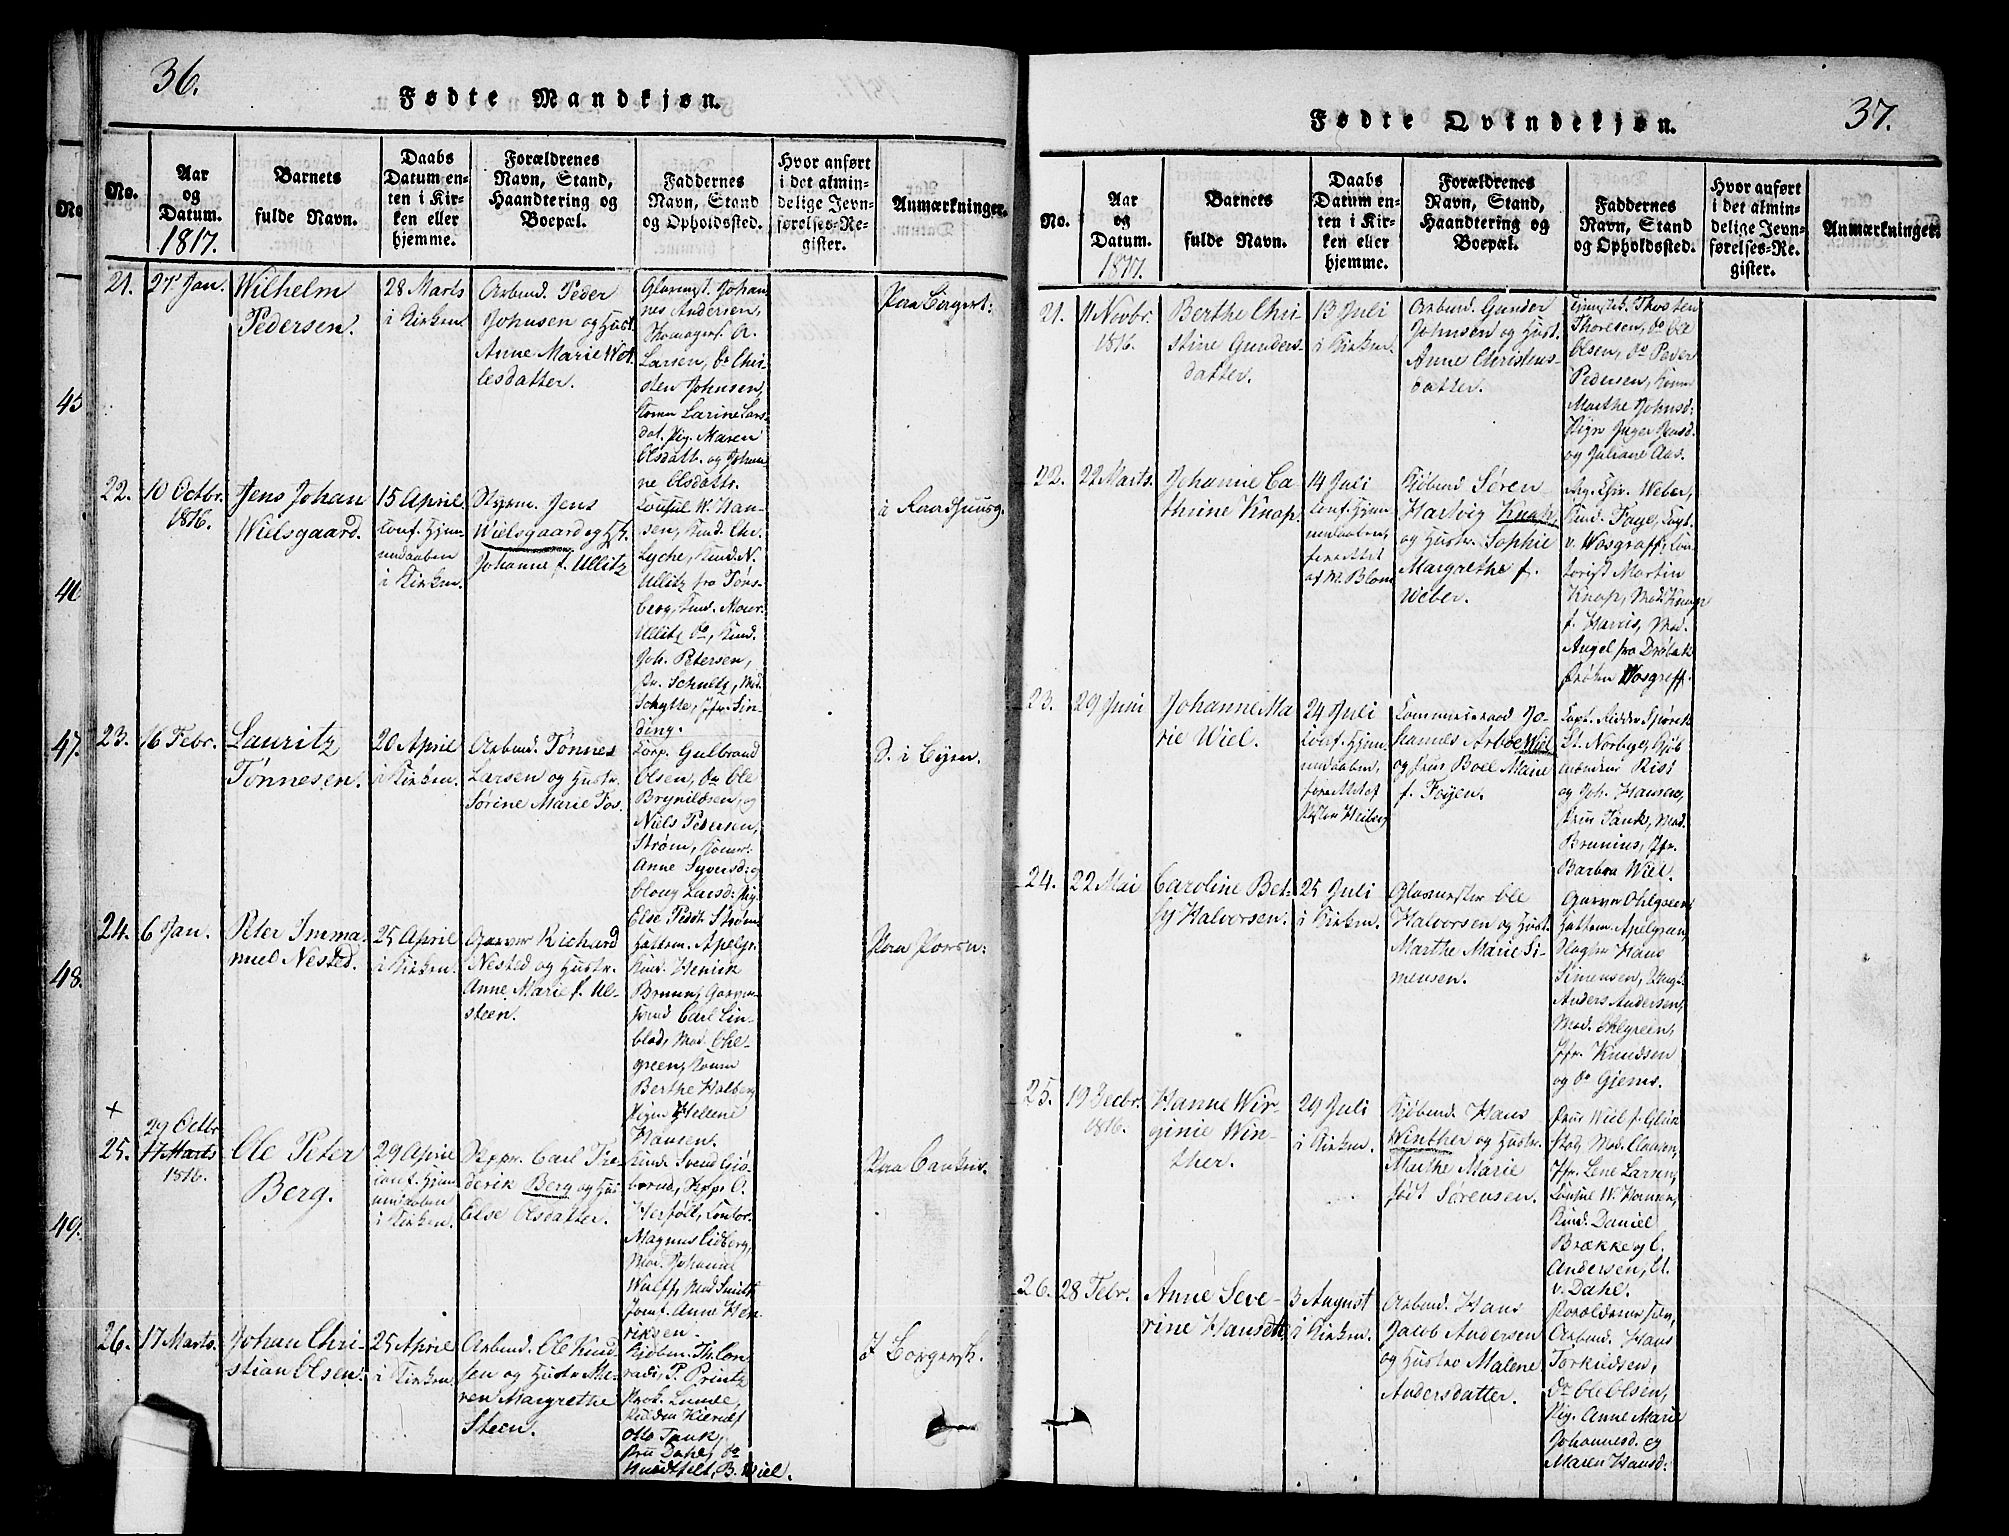 36.
Fødte Mandkjøn.
No.
Aar
og
Datum.
1817.
Barnets
fulde Navn.
Daabs
Datum en-
ten i Kir-
ken eller
hjemme.
Forældrenes
Navn, Stand,
Haandtering og
Boepæl.
Faddernes
Navn, Stand
og Opholdssted.
Hvor anført
i det almin-
delige Jevn-
førelses-Re-
gister.
Anmærkninger.
21.
27 Jan.
Wilhelm
Pedersen.
28 Marts
i Kirken
Arbeid. Peder
Johnsen og Hust.
Anne Marie
lesdatter.
Johan
nes Andersen,
Larsen, do Chri
sten Johnsen,
Larine Lars
dat. Pig. Maren
Olsdatt. og Johan
ne Olsdattr.
22.
10 Octbr.
1816.
Jens Johan
Wielsgaard.
15 April
conf. Hjem
medaaben
i Kirken.
Styrm. Jens
Wielsgaard og H.
Johanne f. Ullitz
Consul W. Han
sen, Chr.
Lyche, N.
Ullitz fra Tøns
berg,
Ullitz do,
Joh. Petersen,
Schultz, Mad.
Schytte, Jfr. Lin
ding.
i Raadhuusg.
23.
16 Febr.
Lauritz
Tønnesen.
20 April
i Kirken.
Arbeid. Tønnes
Larsen og Hustr.
Sørine Marie
Gulbrand
Olsen, do Ole
Brynildsen, og
Niels Pedersen,
Strøm,
Anne Syversd. og
Larsd. Pig.
Else Peds. Strøm
24.
6 Jan.
Peter Imma
nuel Nested.
25 April
i Kirken.
Garver Richard
Nested og Hustr.
Anne Marie f. Ul-
steen.
Apelgr.
Henrik
Bruun, Garver
Carl Lin
blad, Mad. Ohl
green,
Berthe Halberg
Pigen Helene
Hansen.
+
29 Octbr.
25.
17 Marts
1816.
Ole Peter
Berg.
29 April
conf. Hjem
medaaben
i Kirken.
Skippr. Carl Fre
derik Berg og
Else Olsdatter.
Svend
Herföll, Contor.
Magnus Lidberg,
Mad. Johanne
Wulff, Mad Smith
Jomf. Anne Hen
riksen.
26.
17 Marts.
Johan Chri-
stian Olsen.
25 April
i Kirken
Arbeid. Ole Knud
sen og Hustr. Ma-
ren Margrethe
Steen.
P. Printz
Otto Tank,
Fru Dahl, do
Huitfelt, B. Wiel.
45
46
47.
48.
49.
37.
Fødte Qvindekjøn.
No.
Aar
og
Datum.
1817.
Barnets
fulde Navn.
Daabs
Datum en-
ten i Kir-
ken eller
hjemme.
Forældrenes
Navn, Stand,
Haandtering og
Boepæl.
Faddernes
Navn, Stand
og Opholdssted.
Hvor anført
i det almin-
delige Jevn-
førelses-Re-
gister.
Anmærkninger.
21.
11 Novbr.
1816.
Berthe Chri
stine Gunders-
datter.
13 Juli
i Kirken
Arbeid. Gunder
Johnsen og Hust.
Anne Christens-
datter.
Thosten
Thoresen, do Ole
Olsen, do Peder
Pedersen,
Marthe Johnsd.
Inger Jensd.
og Juliane Aas.
22.
22 Marts.
Johanne Ca
thrine Knap.
14 Juli
conf. Hjem
medaaben,
forrettet
af M. Blom
Kjøbmd. Søren
Hartvig Knap,
og Hustr. Sophie
Margrethe f.
Weber.
Weber,
Faye, Capt.
v. Wosgraff, Con
torist Martin
Knap, Mad. Knap
f. Harris, Mad.
Angel fra Drøbak
Frøken Wosgraff.
23.
29 Juni
Johanne Ma
rie Wiel.
24 Juli
conf. Hjem
medaaben,
forr. Ad. af
Hr. Heiberg
Commerceraad Jo-
hannes Arboe Wiel
og Frue Boel Marie
f. Foyen.
Capt. Ridder
Lt. Norbye, Kjøb
mændene Risi
og Joh. Hansen,
Frue Tanks, Mad.
Brunius, Jfr.
Barbra Wiel.
24.
22 Mai
Caroline Bet-
sy Halvorsen.
25 Juli
i Kirken.
Glasmester Ole
Halvorsen og Hust.
Marthe Marie Si-
mensen.
Garver Ohlgreen,
Apelgren,
Hans
Simensen,
Anders Andersen,
Mad. Ohlgreen,
Jfr. Knudsen
og do Gjems.
25.
19 Decbr.
1816.
Hanne Wir-
ginie Win-
ther.
29 Juli
i Kirken.
Kjøbmd. Hans
Winther og Hustr.
Marthe Marie
født Sørensen.
Frue Wiel f. Glük
stad, Mad. Clausen,
Jfr. Lene Larsen,
Consul W. Hansen,
Daniel
Brække og C.
Andersen, Lt.
v. Dahl.
26.
28 Febr.
Anne Seve-
rine Hansdt.
3 August
i Kirken.
Arbeid. Hans
Jacob Andersen
og Hustro Malene
Andersdatter.
Forældrene selv,
Arbeid. Hans
Torkildsen,
do Ole Olsen,
Pig. Anne Marie
Johannesd. og
Maren Hansd.